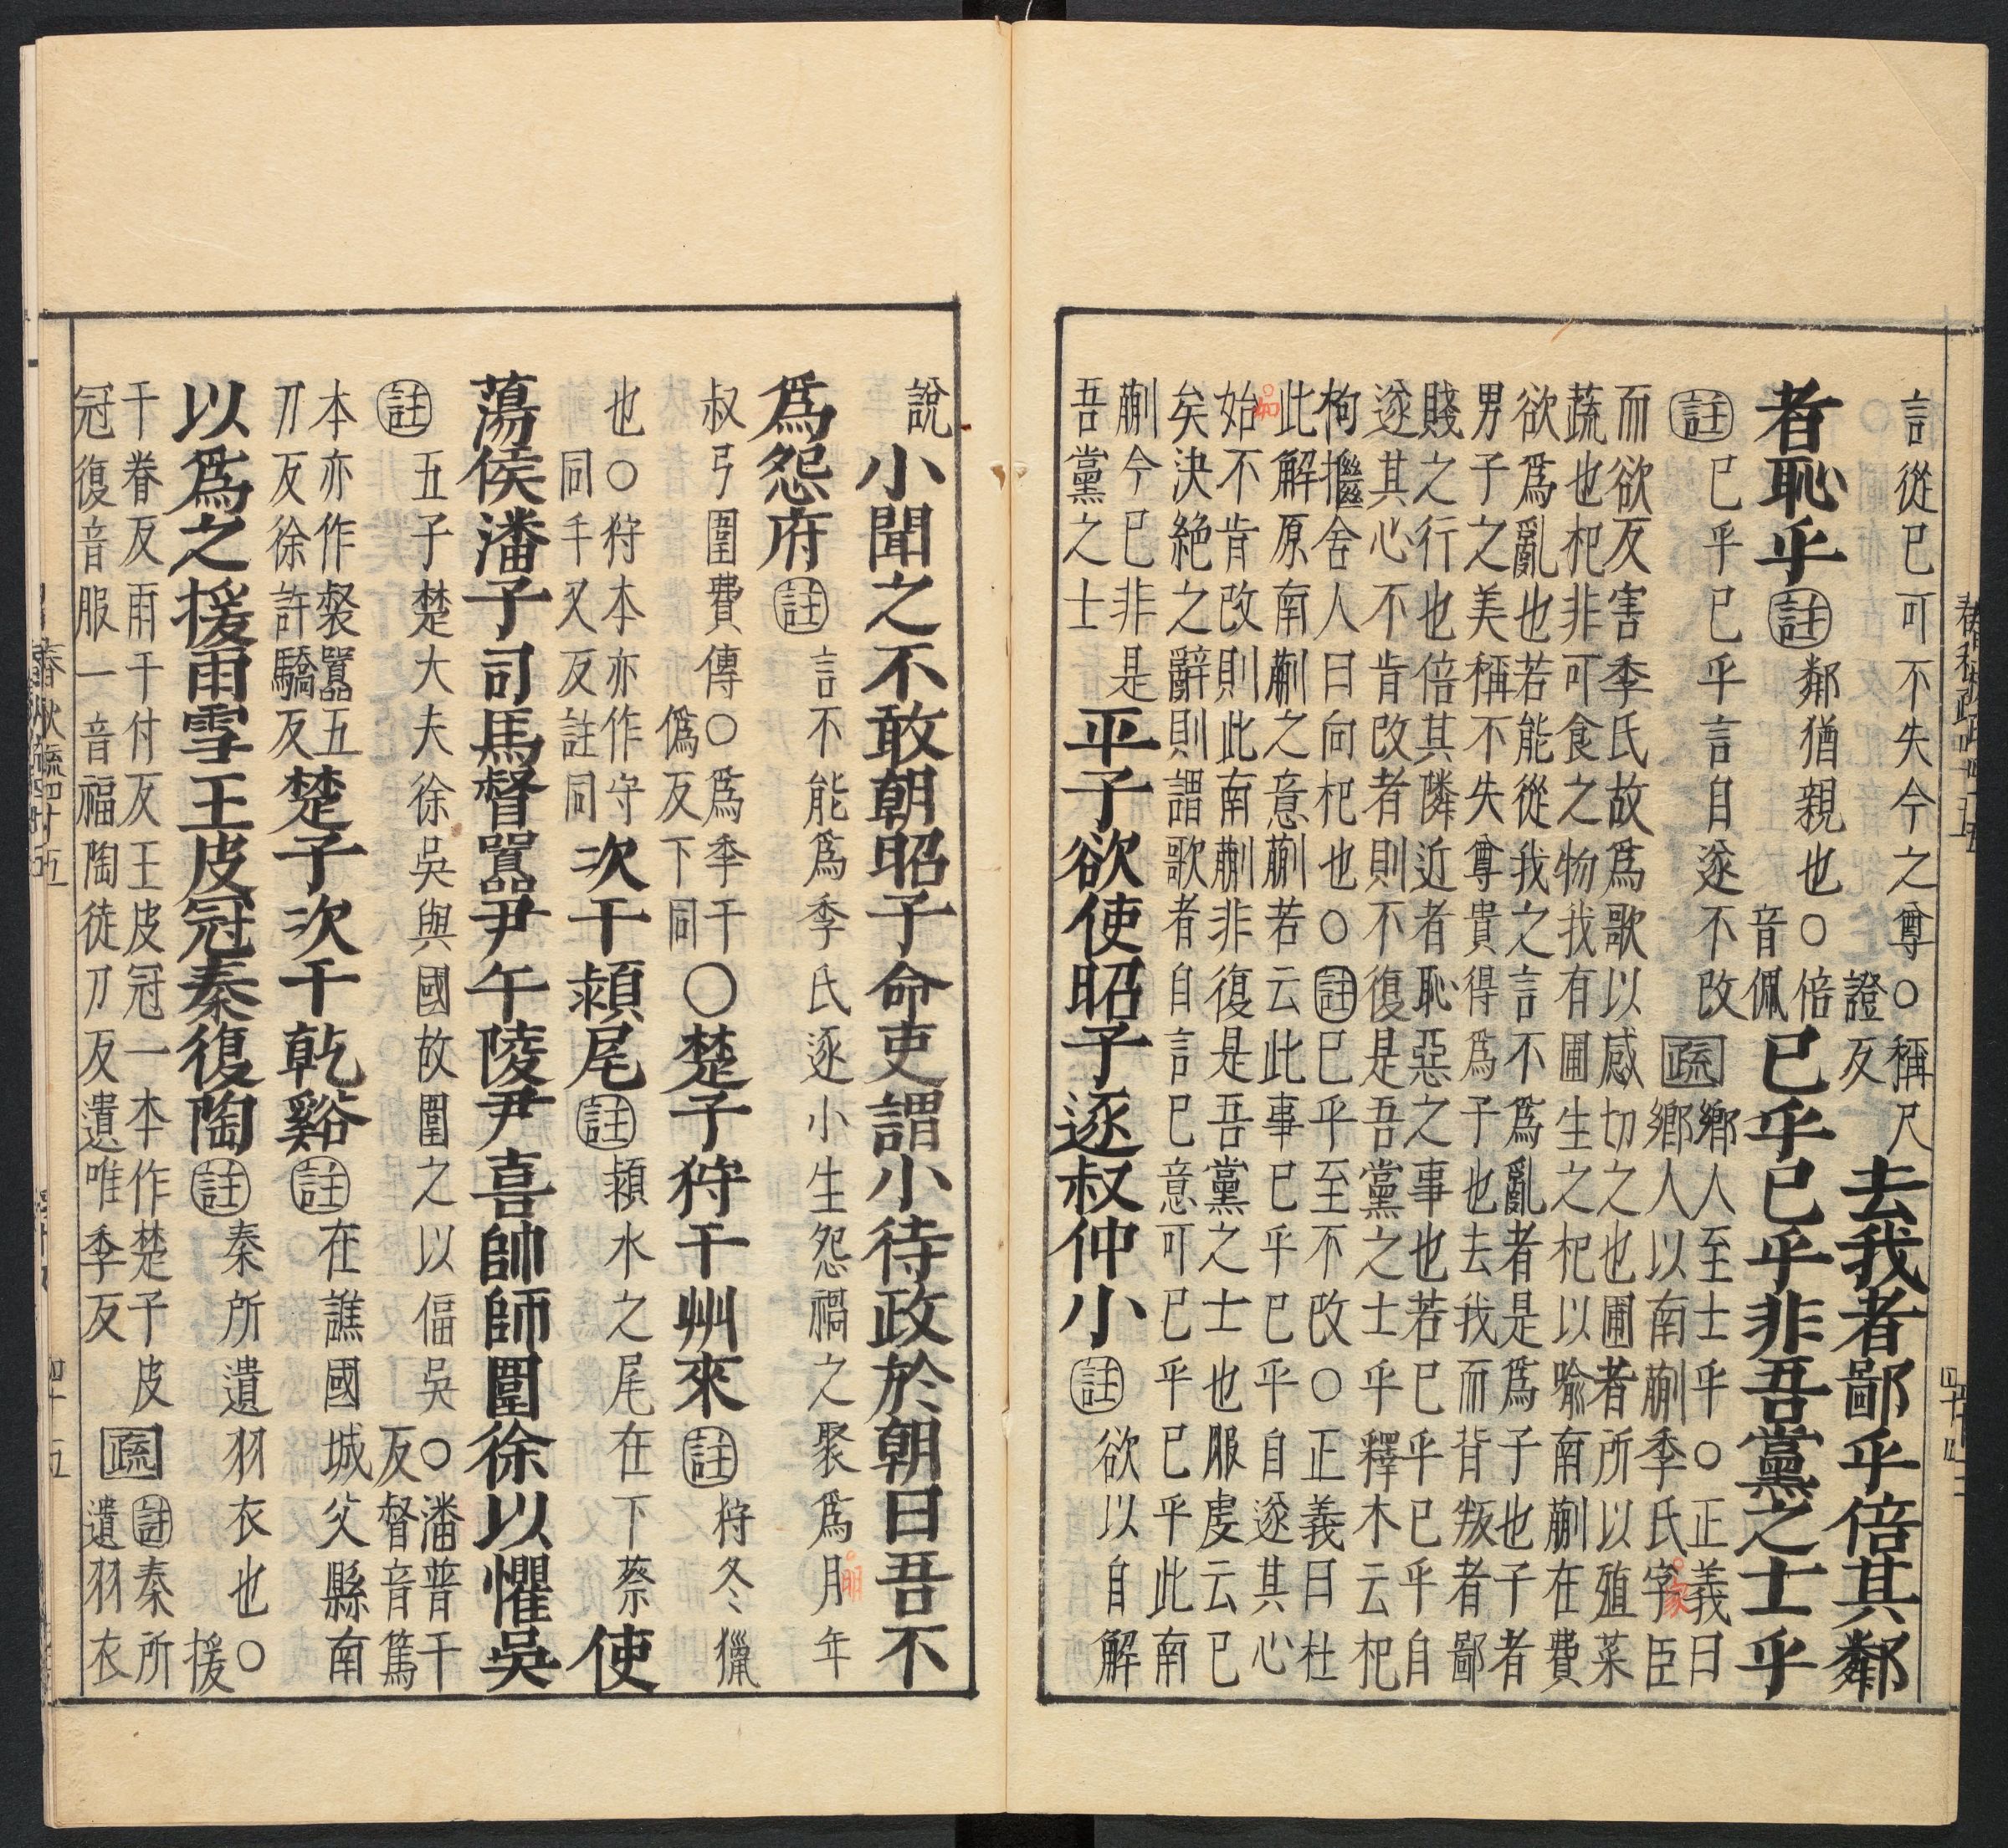 言從已可不失今之尊○稱尺證反去我者鄙乎倍其鄰
者恥乎註鄰猶親也○倍音佩已乎已乎非吾黨之士乎
註已乎已乎言自遂不改疏鄉人至士乎○正義曰
鄉人以南蒯季氏字臣
家
而欲反害季氏故爲歌以感切之也圃者所以殖菜
蔬也杞非可食之物我有圃生之杞以喻南蒯在費
欲爲亂也若能從我之言不爲亂者是爲子也子者
男子之美稱不失尊貴得爲子也去我而背叛者鄙
賤之行也倍其隣近者恥惡之事也若已乎已乎自
遂其心不肯改者則不復是吾黨之士乎釋木云杞
枸檵舍人曰向杞也○註已乎至不改○正義曰杜
此解原南蒯之意蒯若云此事已乎已乎自遂其心
如
始不肯改則此南蒯非復是吾黨之士也服虔云已
矣決絕之辭則謂歌者自言已意可已乎已乎此南
蒯今已非是
吾黨之士平子欲使昭子逐叔仲小註欲以自解
說小聞之不敢朝昭子命吏謂小待政於朝曰吾不
爲怨府註言不能爲季氏逐小生怨禍之聚爲月年
明
叔弓圍費傳○爲季于
僞反下同○楚子狩于州來註狩冬獵
也○狩本亦作守
同手又反註同次于潁尾註潁水之尾在下蔡使
蕩侯潘子司馬督囂尹午陵尹喜帥師圍徐以懼吳
註五子楚大夫徐吳與國故圍之以偪吳○潘普干
反督音篤
本亦作裻囂五
刀反徐許驕反楚子次于乾谿註在譙國城父縣南
以爲之援雨雪王皮冠秦復陶註秦所遺羽衣也○援
于眷反雨于付反王皮冠一本作楚子皮
冠復音服一音福陶徒刀反遺唯季反疏註秦所
遺羽衣